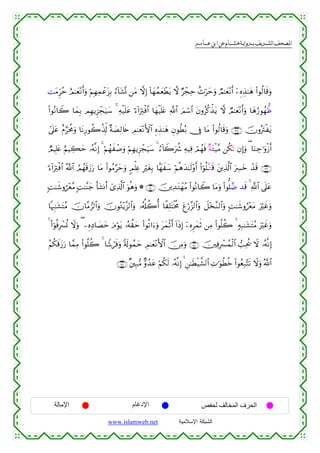 المصحف الشريف برواية هشام عن ابن عامر
وَقَالُوا۟ هَـٰذِهِۦٓ أَنْعَـٰمٌ وَحَرْثٌ حِجْرٌ لَّا يَطْعَمُهَآ إِلَّا مَن نَّشَآءُ بِزَعْمِهِمْ وَأَنْعَـٰمٌ حُرِّمَتْ
ظُهُورُهَا وَأَنْعَـٰمٌ لَّا يَذْكُرُونَ ٱسْمَ ٱللَّهِ عَلَيْهَا ٱفْتِرَآءً عَلَيْهِ ۚ سَيَجْزِيهِم بِمَا كَانُوا۟
يَفْتَرُونَ ﴿١٣٨﴾ وَقَالُوا۟ مَا فِى بُطُونِ هَـٰذِهِ ٱلْأَنْعَـٰمِ خَالِصَةٌ لِّذُكُورِنَا وَمُحَرَّمٌ عَلَىٰٓ
أَزْوَٰجِنَا ۖ وَإِن تَكُن مَّيْتَةٌ فَهُمْ فِيهِ شُرَكَآءُ ۚ سَيَجْزِيهِمْ وَصْفَهُمْ ۚ إِنَّهُۥ حَكِيمٌ عَلِيمٌ
﴿١٣٩﴾ قَدْ خَسِرَ ٱلَّذِينَ قَتَّلُوٓا۟ أَوْلَـٰدَهُمْ سَفَهًۢا بِغَيْرِ عِلْمٍ وَحَرَّمُوا۟ مَا رَزَقَهُمُ ٱللَّهُ ٱفْتِرَآءً
عَلَى ٱللَّهِ ۚ قَدْ ضَلُّوا۟ وَمَا كَانُوا۟ مُهْتَدِينَ ﴿١٤٠﴾ * وَهُوَ ٱلَّذِىٓ أَنشَأَ جَنَّـٰتٍ مَّعْرُوشَـٰتٍ
وَغَيْرَ مَعْرُوشَـٰتٍ وَٱلنَّخْلَ وَٱلزَّرْعَ مُخْتَلِفًا أُكُلُهُۥ وَٱلزَّيْتُونَ وَٱلرُّمَّانَ مُتَشَـٰبِهًا
وَغَيْرَ مُتَشَـٰبِهٍ ۚ كُلُوا۟ مِن ثَمَرِهِۦٓ إِذَآ أَثْمَرَ وَءَاتُوا۟ حَقَّهُۥ يَوْمَ حَصَادِهِۦ ۖ وَلَا تُسْرِفُوٓا۟ ۚ
إِنَّهُۥ لَا يُحِبُّ ٱلْمُسْرِفِينَ ﴿١٤١﴾ وَمِنَ ٱلْأَنْعَـٰمِ حَمُولَةً وَفَرْشًا ۚ كُلُوا۟ مِمَّا رَزَقَكُمُ
ٱللَّهُ وَلَا تَتَّبِعُوا۟ خُطُوَٰتِ ٱلشَّيْطَـٰنِ ۚ إِنَّهُۥ لَكُمْ عَدُوٌّ مُّبِينٌ ﴿١٤٢﴾
الحرف المخالف لحفص الإدغام الإمالة
الشبكة الإسلامية www.islamweb.net